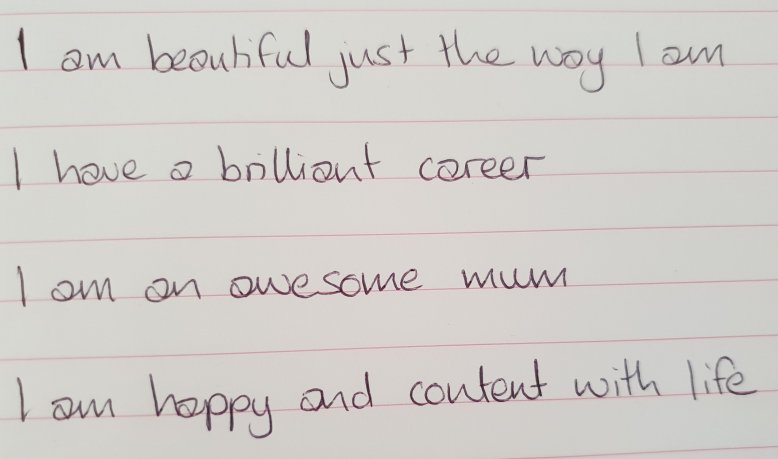 I am beautiful just the way I am
I have a brilliant career
I am an awesome mum
I am happy and content with life